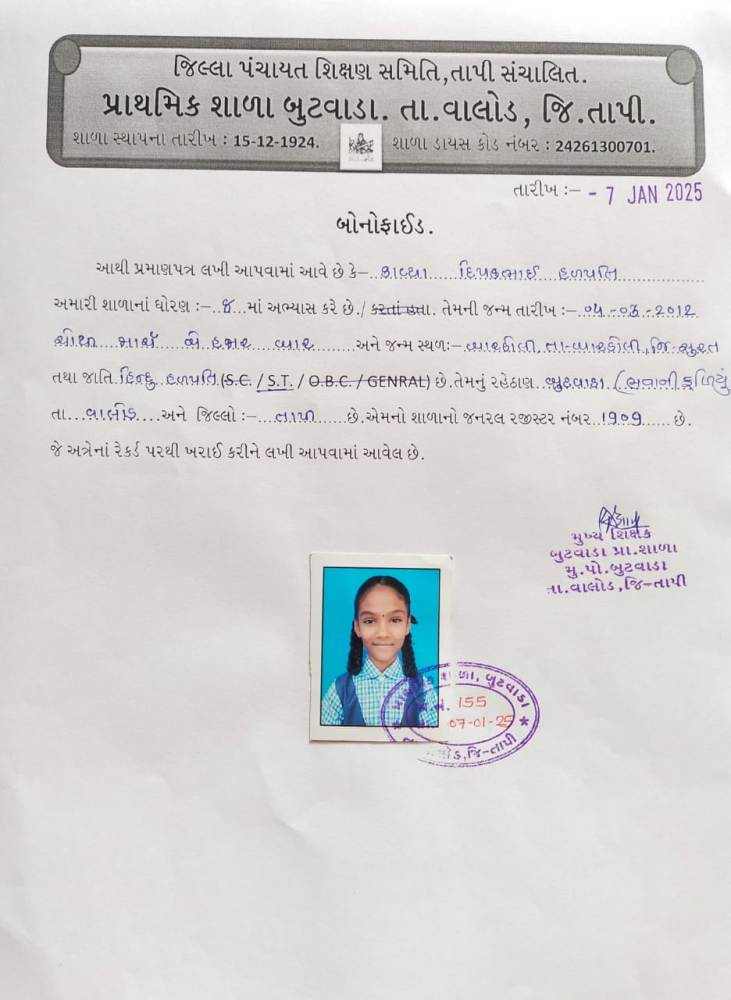 જિલ્લા પંચાયત શિક્ષણ સમિતિ,તાપી સંચાલિત.
પ્રાથમિક શાળા બુટવાડા. તા.વાલોડ, જિ.તાપી.
શાળા સ્થાપના તારીખ : 15-12-1924. શાળા ડાયસ કોડ નંબર : 24261300701.
તારીખ :– - 7 JAN 2025
બોનોફાઈડ.
આથી પ્રમાણપત્ર લખી આપવામાં આવે છે કે– કાવ્યા દિપકભાઈ હળપતિ
અમારી શાળાનાં ધોરણ :– ૭ માં અભ્યાસ કરે છે./ કરતાં હતા. તેમની જન્મ તારીખ :– ૦૫ -૦૩ -૨૦૧૨
માર્ચ બે હજાર બાર અને જન્મ સ્થળ:– બારડોલી, તા-બારડોલી, જિ-સુરત
તથા જાતિ હિન્દુ હળપતિ (S.C. / S.T. / O.B.C. / GENRAL) છે.તેમનું રહેઠાણ બુટવાડા (ભવાની ફળિયું
તા... વાલોડ ....અને જિલ્લો :–.... તાપી ......છે.એમનો શાળાનો જનરલ રજીસ્ટર નંબર ..૧૭૦૧...... છે.
જે અત્રેનાં રેકર્ડ પરથી ખરાઈ કરીને લખી આપવામાં આવેલ છે.
મુખ્ય શિક્ષક
બુટવાડા પ્રા.શાળા
મુ.પો.બુટવાડા
તા.વાલોડ,જિ–તાપી
શાળા, બુટવાડા ★
155
07-01-25
જિ–તાપી